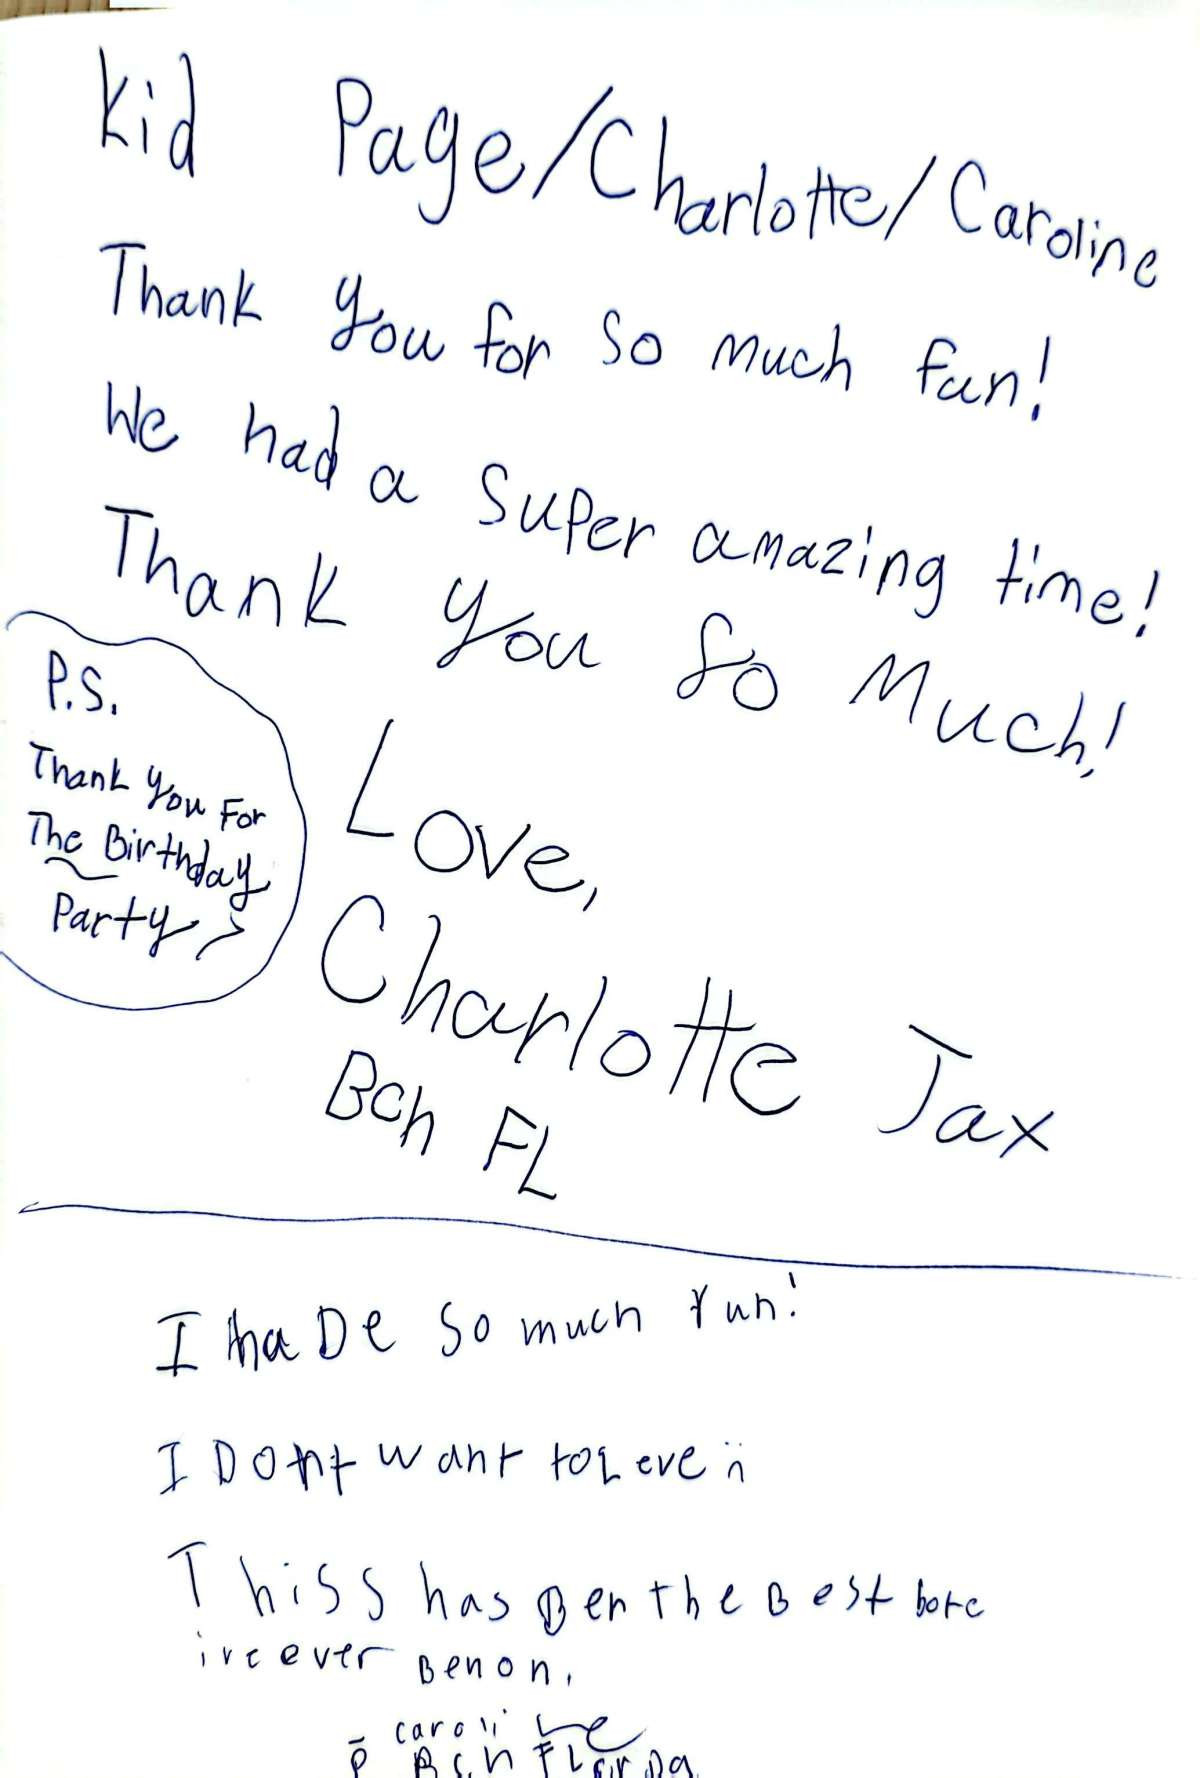 Kid Page/Charlotte/Caroline
Thank you for so much fun!
We had a super amazing time!
Thank you so Much!
P.S.
Thank you For
The Birthday
Party
Love,
Charlotte Jax
Bch FL
I haDe so much fun!
I DOnt want to Leve
Thiss has Ben the Best bote
ive ever Benon.
caroline
Bch FLorDa